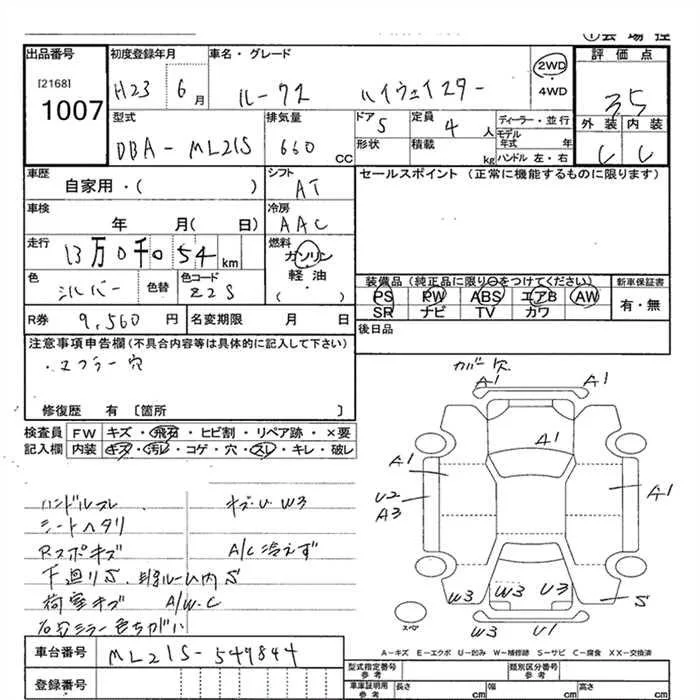 ①会場控
出品番号
[2168]
1007
初度登録年月
H23 6月
車名・グレード
ルークス ハイウェイスター
2WD
4WD
評価点
3.5
外装 内装
C C
型式
DBA-ML21S
排気量
660 CC
ドア
5
形状
定員
4 人
積載
kg
ディーラー・並行
モデル年式 年
ハンドル 左・右
車歴
自家用・( )
シフト
AT
セールスポイント(正常に機能するものに限ります)
車検
年 月( 日)
冷房
AAC
走行
13万0千054km
燃料
ガソリン
軽油・
( )
色
シルバー
色替
色コード
Z2S
装備品(純正品に限り○をつけてください)
PS PW ABS エアB AW
SR ナビ TV カワ
新車保証書
有・無
R券 9,560 円
名変期限 月 日
後日品
注意事項申告欄(不具合内容等は具体的に記入して下さい)
・マフラー穴
修復歴 有 [箇所 ]
検査員記入欄
FW キズ・飛石・ヒビ割・リペア跡・×要
内装 キズ・汚レ・コゲ・穴・スレ・キレ・破レ
ハンドルスレ
シートヘタリ
Rスポキズ
下廻りS、
ルーム内S
荷室キズ A/W.C
ミラー色ちがい
キズ・U W3
A/C冷えず
カバー欠
A1 A1
A1
A1
U2
A3
A1
W3 W3 U3 U3 S
W3 U1
スペア
A-キズ E-エクボ U-凹み W-補修跡 S-サビ C-腐食 XX-交換済
車台番号 ML21S-549844
登録番号
型式指定番号 参考
類別区分番号 参考
車庫証明用 参考
長さ cm 幅 cm 高さ cm